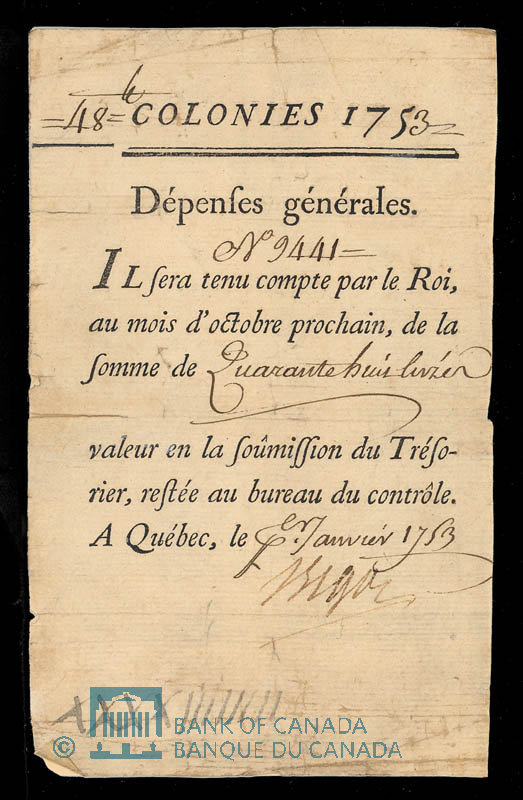 =48=tt COLONIES 1753
Dépenſes générales.
No 9441=
IL ſera tenu compte par le Roi,
au mois d'octobre prochain, de la
ſomme de Quarante huit livres
valeur en la ſoûmiſſion du Tréſo-
rier, reſtée au bureau du contrôle.
A Québec, le per. Janvier 1753
Bigot
BANK OF CANADA
© BANQUE DU CANADA